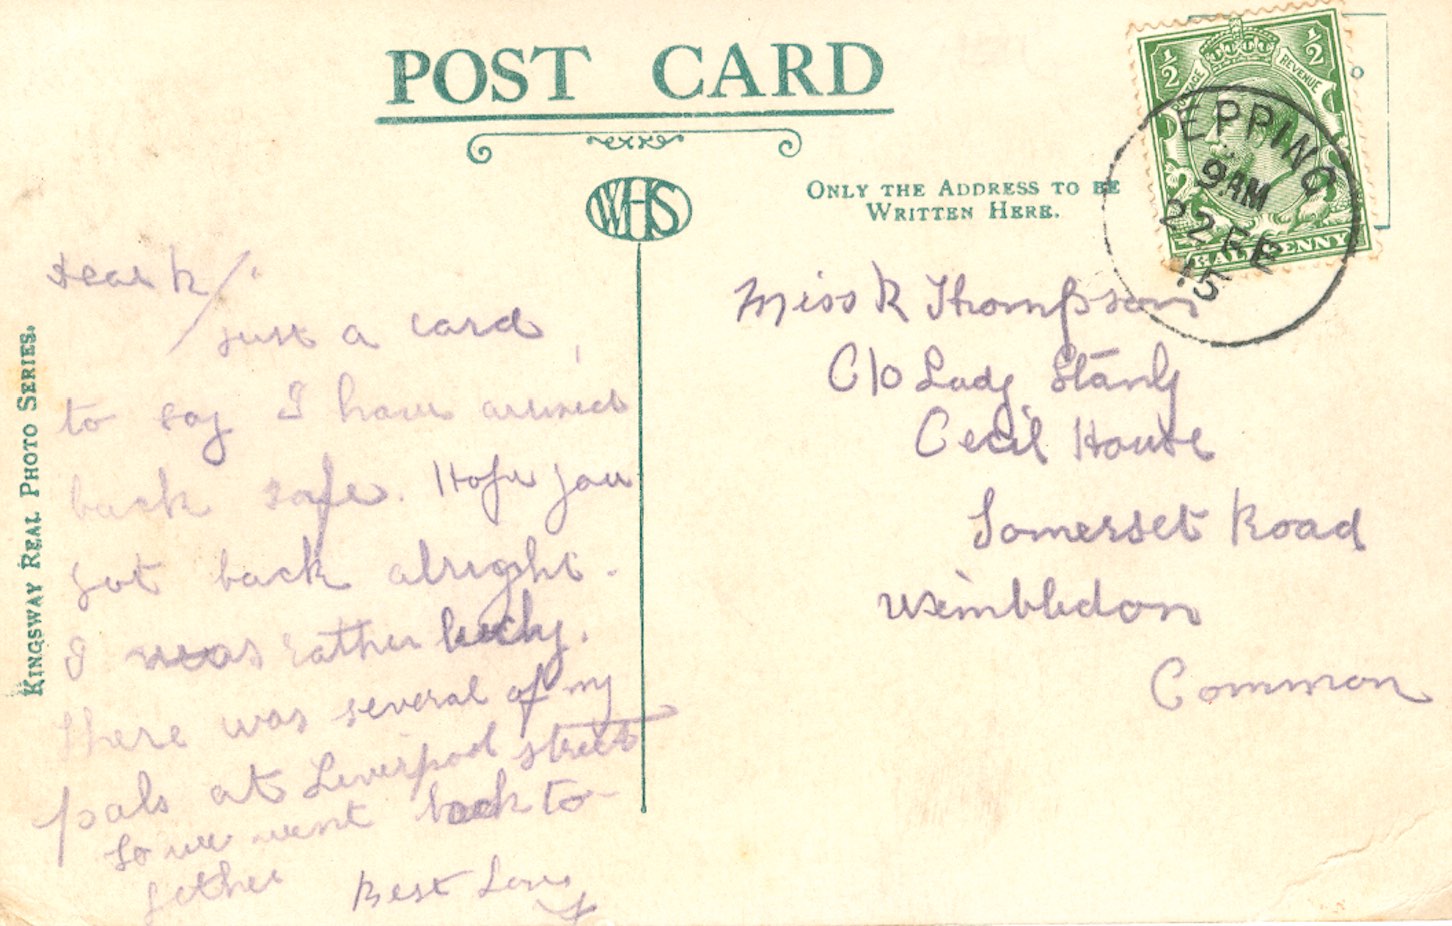 POST CARD
WHS
ONLY THE ADDRESS TO BE
WRITTEN HERE.
KINGSWAY REAL PHOTO SERIES.
½ ½
POSTAGE REVENUE
HALFPENNY
EPPING
9 AM
22 FE
15
Dear K/.
Just a card
to say I have arrived
back safe. Hope you
got back alright.
I was rather lucky.
there was several of my
pals at Liverpool street
So we went back to
gether Best Love
Miss K Thompson
C/o Lady Stanly
Cecil House
Somerset Road
Wimbledon
Common